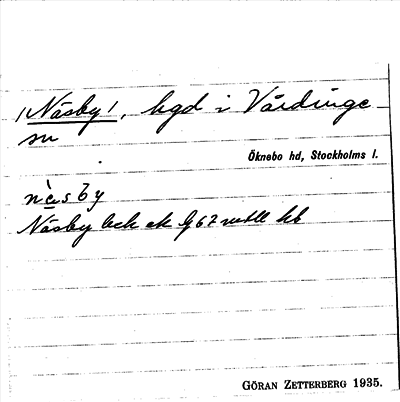 /Näsby/, bgd i Vårdinge
sn
Öknebo hd, Stockholms l.
nɛ̀sby
Näsby bck ek G 67
GÖRAN ZETTERBERG 1935.